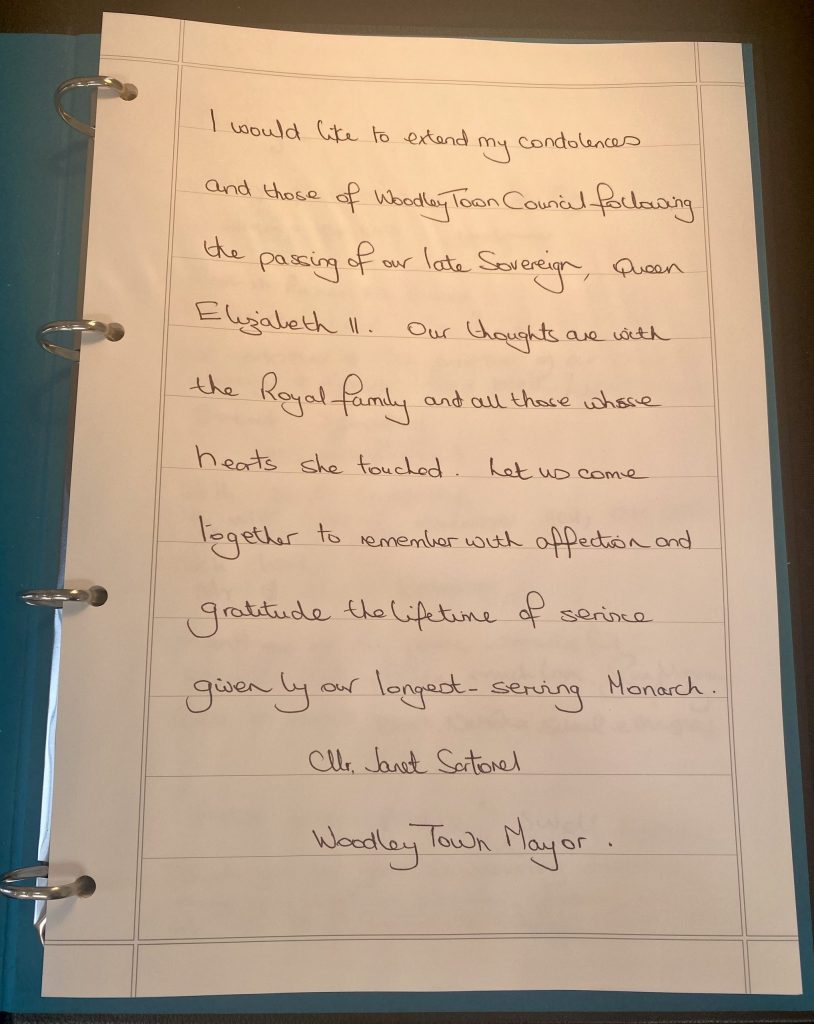 I would like to extend my condolences
and those of Woodley Town Council following
the passing of our late Sovereign, Queen
Elizabeth II. Our thoughts are with
the Royal family and all those whose
hearts she touched. Let us come
together to remember with affection and
gratitude the lifetime of service
given by our longest-serving Monarch.
Cllr. Janet Sartorel
Woodley Town Mayor.